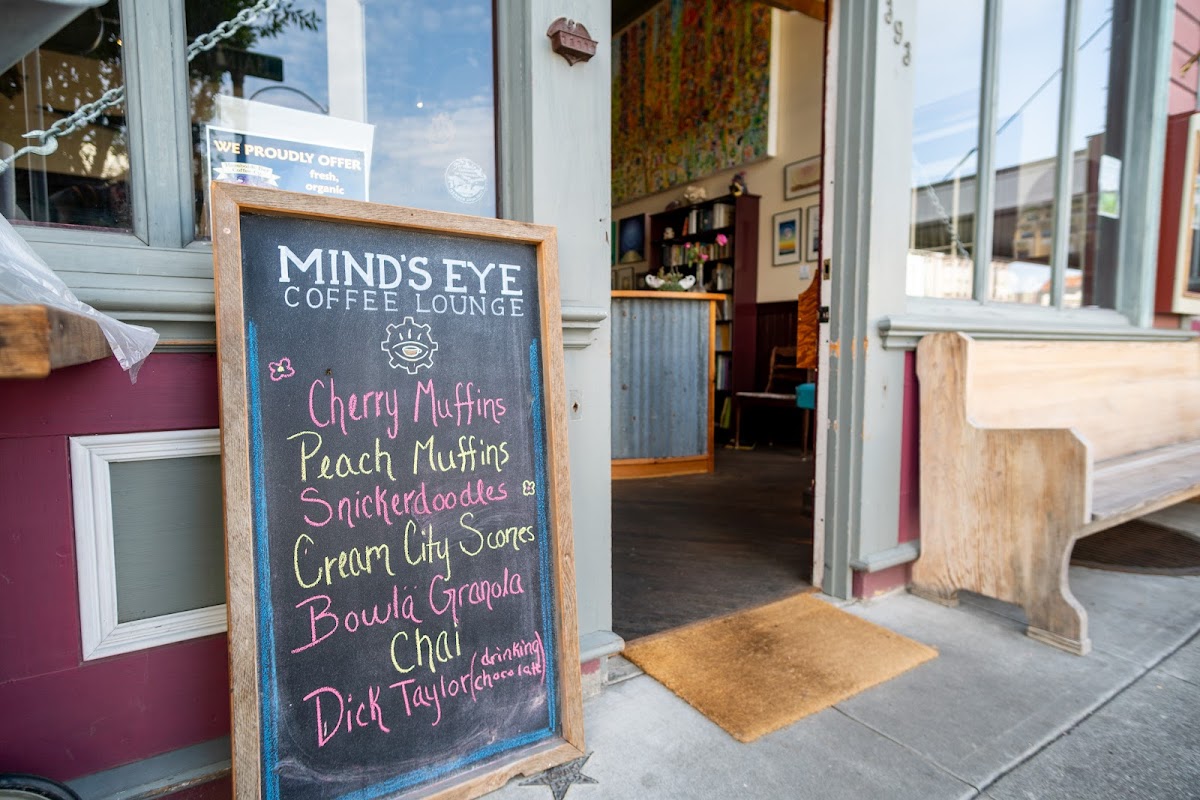 393
WE PROUDLY OFFER
fresh,
organic
MIND'S EYE
COFFEE LOUNGE
Cherry Muffins
Peach Muffins
Snickerdoodles
Cream City Scones
Bowlä Granola
Chai
Dick Taylor (drinking
chocolate)